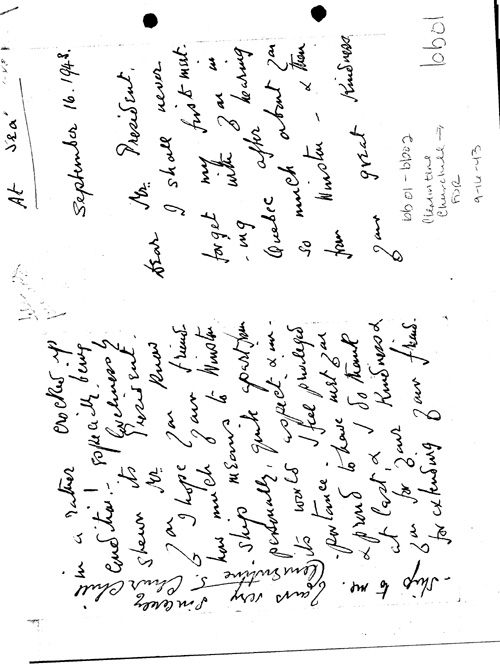 At Sea
September 16. 1943.
Dear Mr. President,
I shall never
forget my first meet
-ing with you in
Quebec after hearing
so much about you
from Winston - & then
your great kindness
in a rather crocked up
condition! - especially being
shewn its loveliness by
you Mr. President.
I hope you know
how much your friend
-ship means to Winston
personally, quite apart from
its world aspect & im-
-portance. I feel privileged
& proud to have met you
at last & I do thank
you for your kindness &
for extending your friend
-ship to me.
Yours very sincerely
Clementine S. Churchill
bb01
bb01-bb02
Clementine
Churchill →
FDR
9-16-43